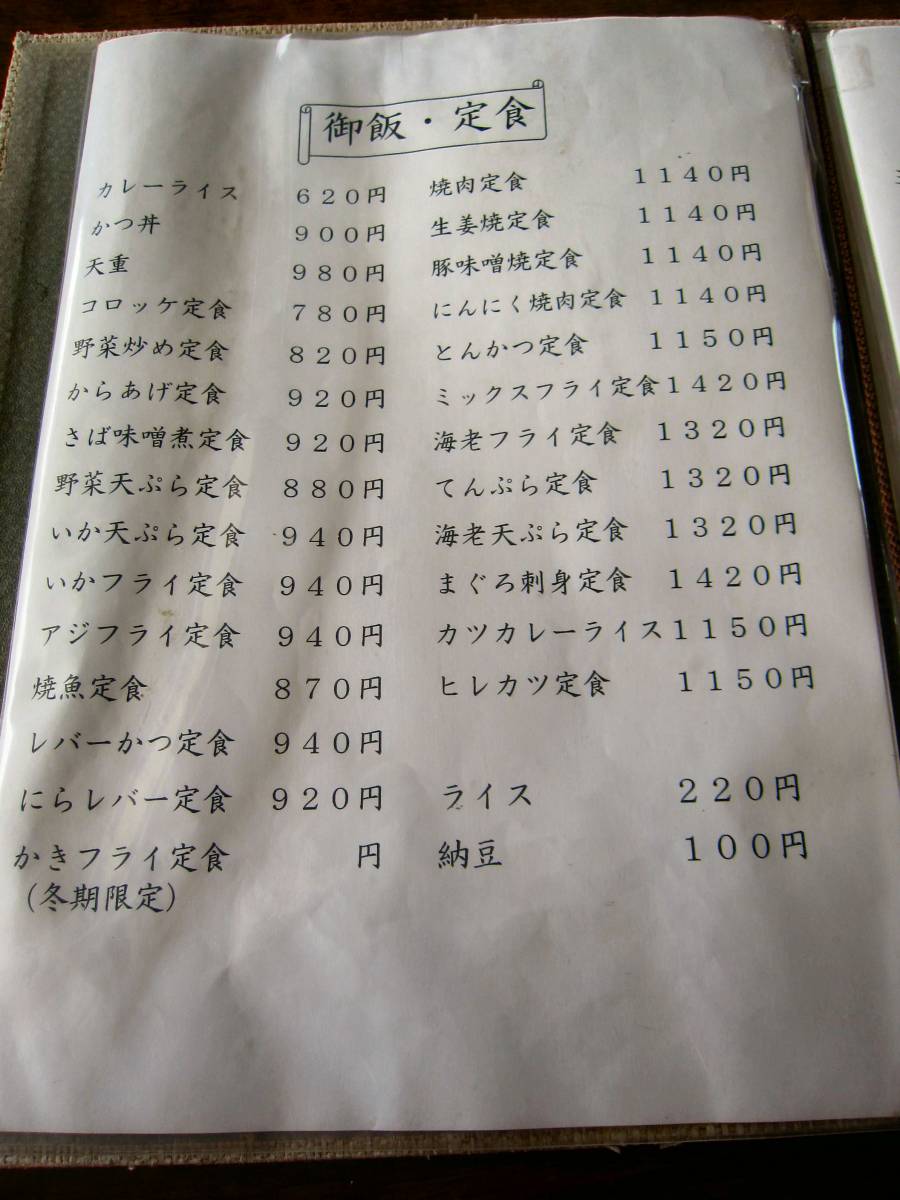 御飯・定食
カレーライス ６２０円
かつ丼 ９００円
天重 ９８０円
コロッケ定食 ７８０円
野菜炒め定食 ８２０円
からあげ定食 ９２０円
さば味噌煮定食 ９２０円
野菜天ぷら定食 ８８０円
いか天ぷら定食 ９４０円
いかフライ定食 ９４０円
アジフライ定食 ９４０円
焼魚定食 ８７０円
レバーかつ定食 ９４０円
にらレバー定食 ９２０円
かきフライ定食 円
（冬期限定）
焼肉定食 １１４０円
生姜焼定食 １１４０円
豚味噌焼定食 １１４０円
にんにく焼肉定食 １１４０円
とんかつ定食 １１５０円
ミックスフライ定食 １４２０円
海老フライ定食 １３２０円
てんぷら定食 １３２０円
海老天ぷら定食 １３２０円
まぐろ刺身定食 １４２０円
カツカレーライス １１５０円
ヒレカツ定食 １１５０円
ライス ２２０円
納豆 １００円